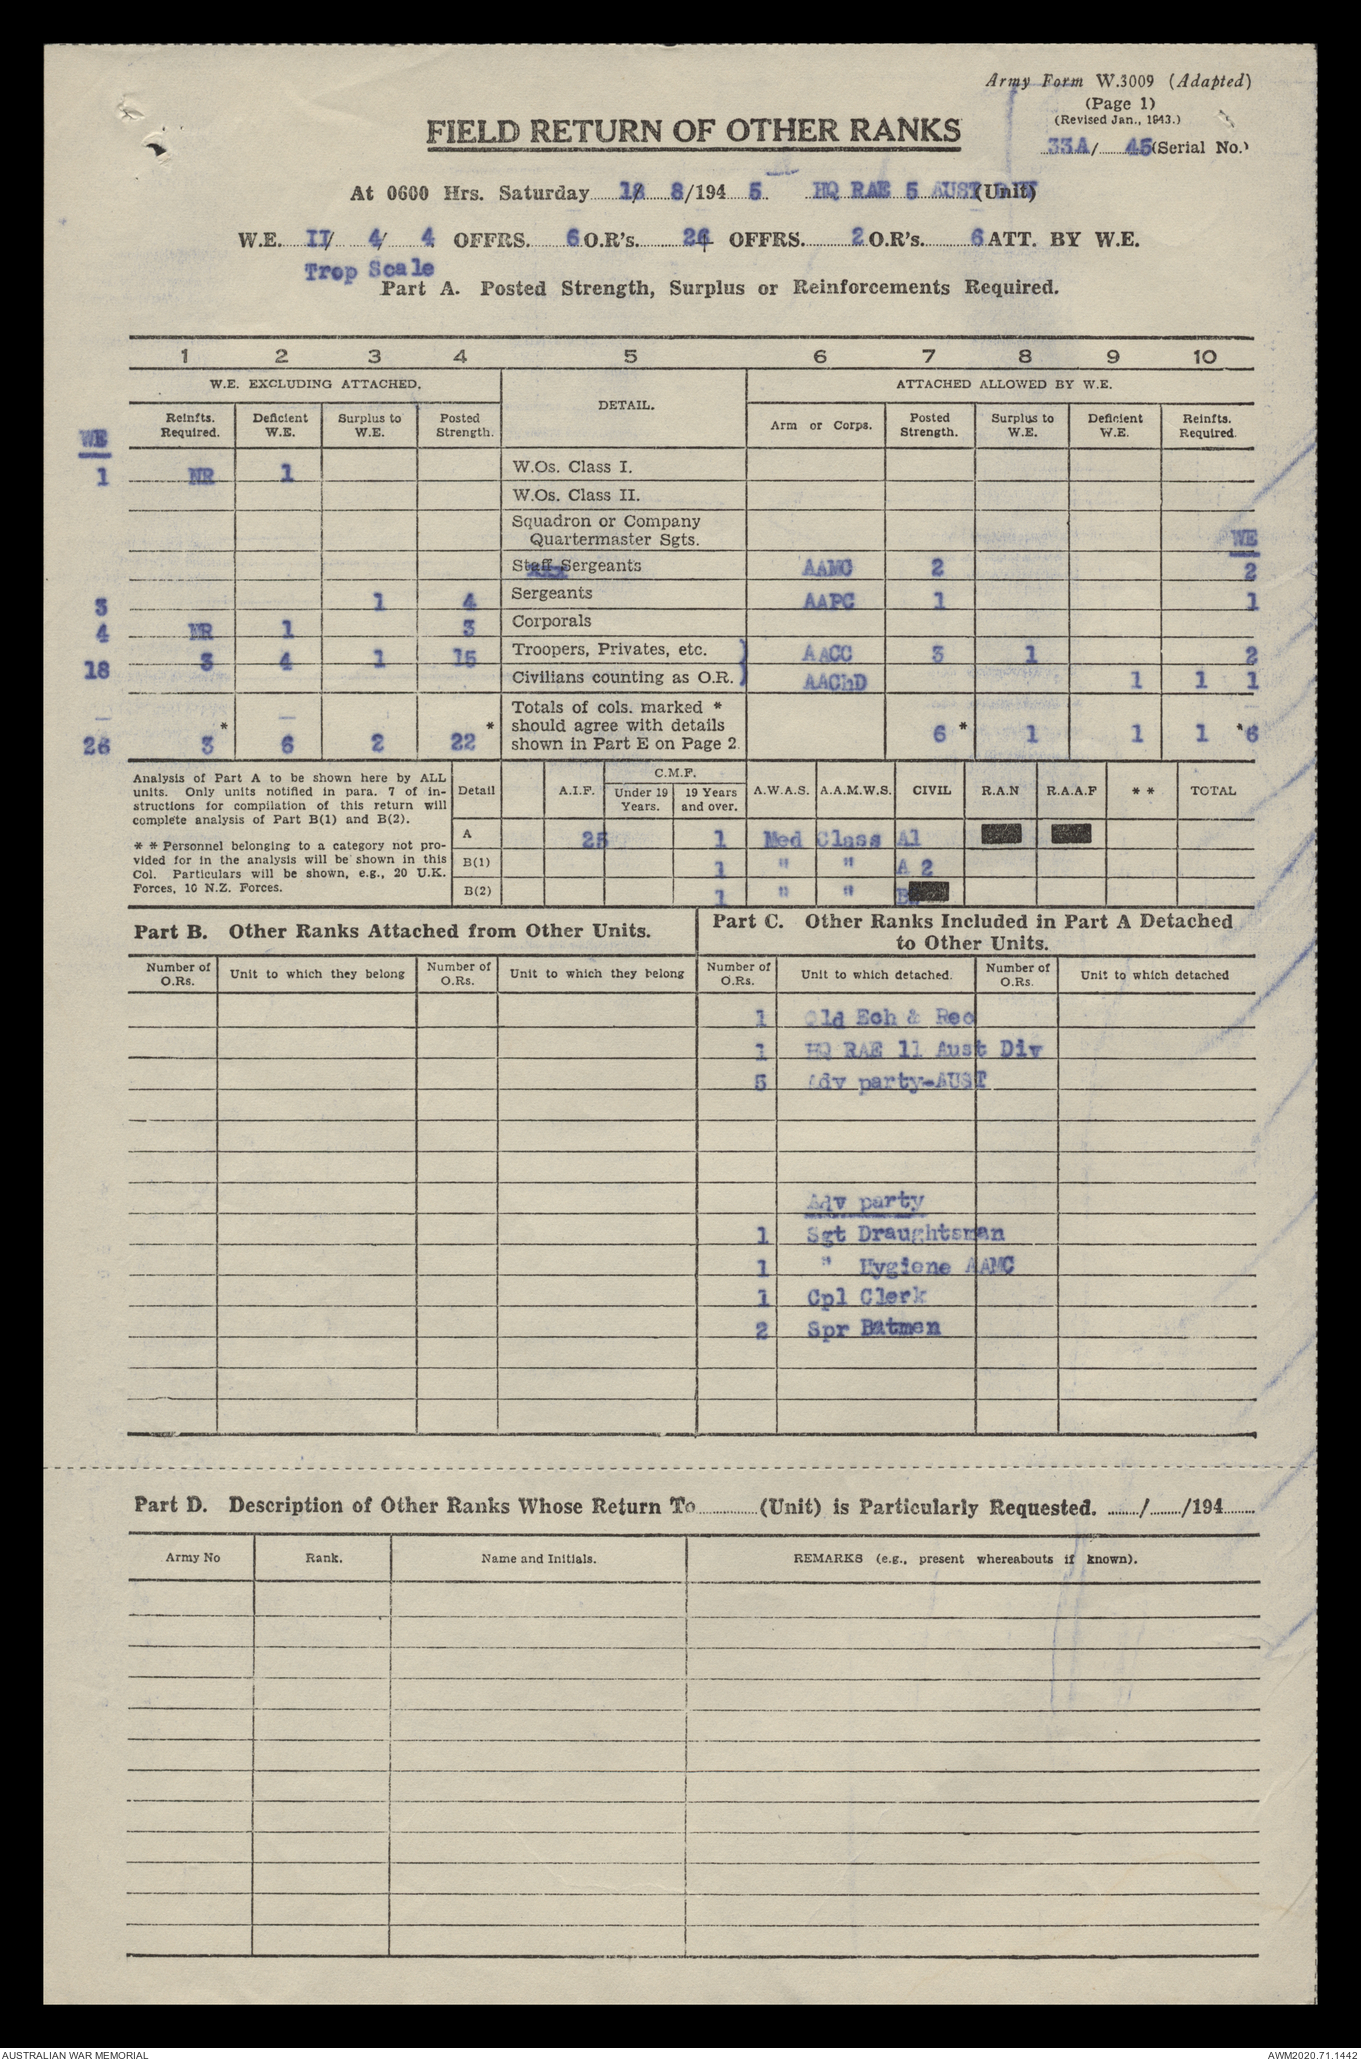 Army Form W.3009 (Adapted)
(Page 1)
(Revised Jan., 1943.)
33A/ 45 (Serial No.)
FIELD RETURN OF OTHER RANKS
At 0600 Hrs. Saturday 18 8/194 5 HQ RAE 5 AUST DIV (Unit)
W.E. II/ 4/ 4 OFFRS. 6 O.R's. 26 OFFRS. 2 O.R's. 6 ATT. BY W.E.
Trop Scale
Part A. Posted Strength, Surplus or Reinforcements Required.
1 2 3 4 5 6 7 8 9 10
W.E. EXCLUDING ATTACHED. DETAIL. ATTACHED ALLOWED BY W.E.
Reinfts. Required. Deficient W.E. Surplus to W.E. Posted Strength. Arm or Corps. Posted Strength. Surplus to W.E. Deficient W.E. Reinfts. Required.
WE
1 NR 1 W.Os. Class I.
W.Os. Class II.
Squadron or Company
Quartermaster Sgts. WE
Staff Sergeants AAMC 2 2
3 1 4 Sergeants AAPC 1 1
4 NR 1 3 Corporals
18 3 4 1 15 Troopers, Privates, etc. AACC 3 1 2
Civilians counting as O.R. AAChD 1 1 1
Totals of cols. marked *
should agree with details
26 3 * 6 2 22 * shown in Part E on Page 2. 6 * 1 1 1 * 6
Analysis of Part A to be shown here by ALL
units. Only units notified in para. 7 of in-
structions for compilation of this return will
complete analysis of Part B(1) and B(2).
* * Personnel belonging to a category not pro-
vided for in the analysis will be shown in this
Col. Particulars will be shown, e.g., 20 U.K.
Forces, 10 N.Z. Forces.
C.M.F.
Detail A.I.F. Under 19 Years. 19 Years and over. A.W.A.S. A.A.M.W.S. CIVIL R.A.N R.A.A.F * * TOTAL
A 25 1 Med Class A1
B(1) 1 " " A 2
B(2) 1 " " B
Part B. Other Ranks Attached from Other Units.
Part C. Other Ranks Included in Part A Detached
to Other Units.
Number of O.Rs. Unit to which they belong Number of O.Rs. Unit to which they belong Number of O.Rs. Unit to which detached. Number of O.Rs. Unit to which detached
1 Old Ech & Rec
1 HQ RAE 11 Aust Div
5 Adv party-AUST
Adv party
1 Sgt Draughtsman
1 " Hygiene AAMC
1 Cpl Clerk
2 Spr Batmen
Part D. Description of Other Ranks Whose Return To (Unit) is Particularly Requested. / /194
Army No Rank. Name and Initials. REMARKS (e.g., present whereabouts if known).
AUSTRALIAN WAR MEMORIAL AWM2020.71.1442